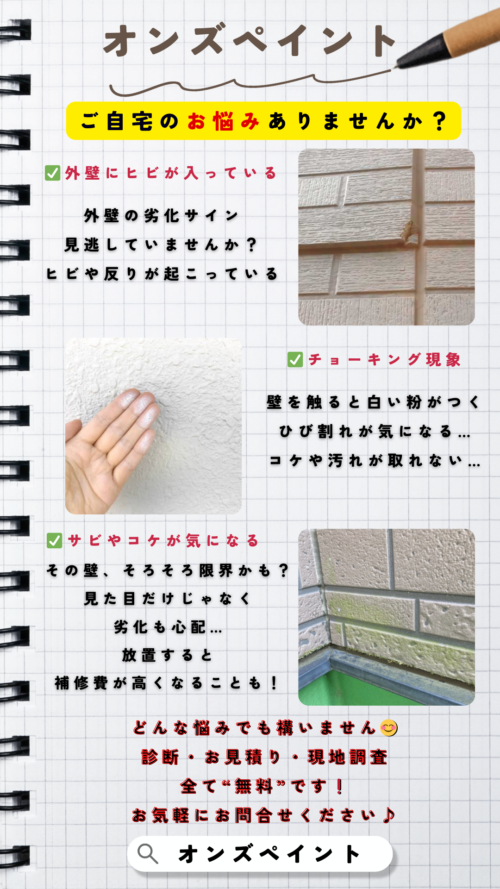 オンズペイント
ご自宅のお悩みありませんか？
✅外壁にヒビが入っている
外壁の劣化サイン
見逃していませんか？
ヒビや反りが起こっている
✅チョーキング現象
壁を触ると白い粉がつく
ひび割れが気になる…
コケや汚れが取れない…
✅サビやコケが気になる
その壁、そろそろ限界かも？
見た目だけじゃなく
劣化も心配…
放置すると
補修費が高くなることも！
どんな悩みでも構いません😊
診断・お見積り・現地調査
全て“無料”です！
お気軽にお問合せください♪
オンズペイント